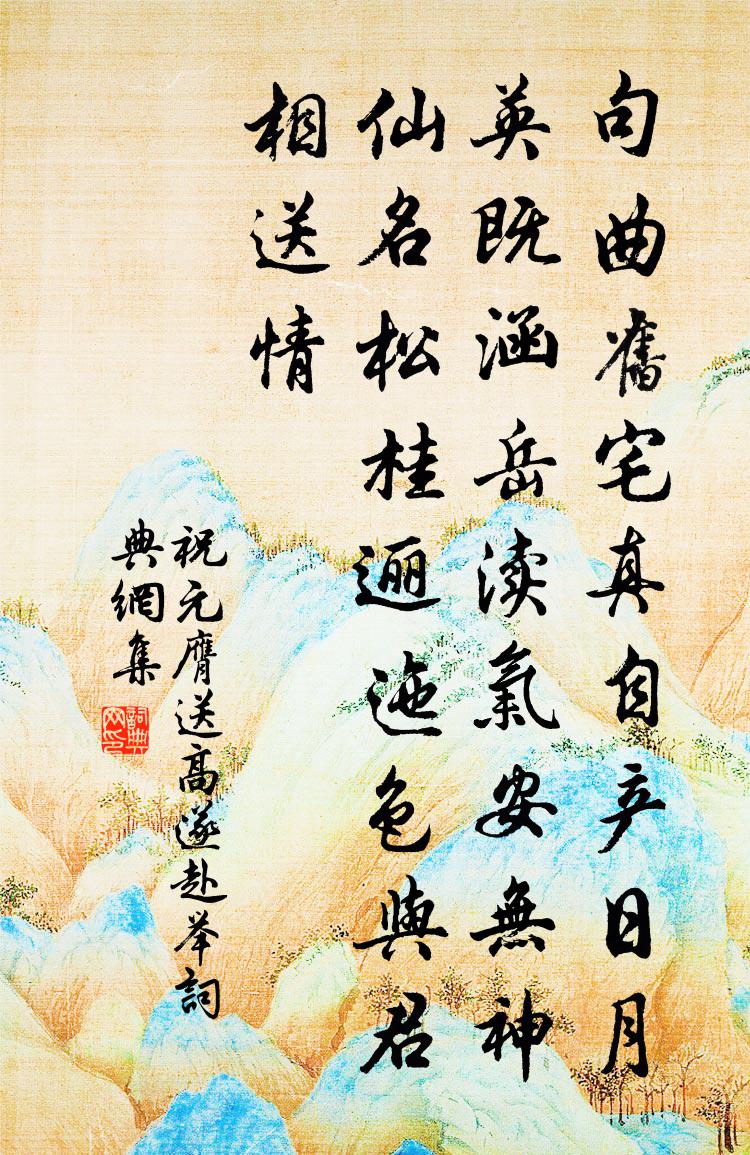 句曲舊宅真自产日月
英既涵岳渎氣安無神
仙名松桂逦迤色與君
相送情
祝元膺送高遂赴举詞
典網集
詞典网印